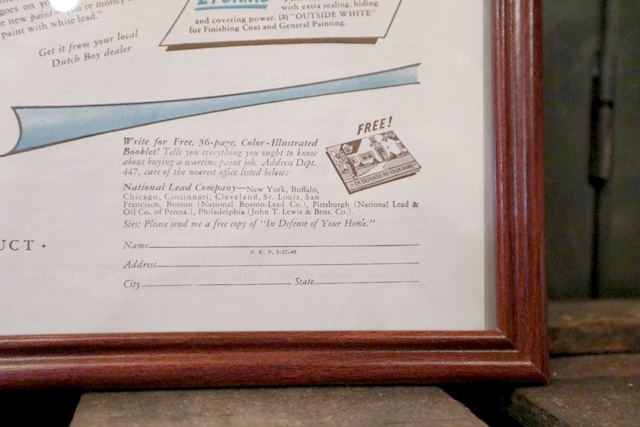 goes on you
e new paint
paint with white lead."
Get it from your local
Dutch Boy dealer
with extra sealing, hiding
and covering power. (2) "OUTSIDE WHITE"
for Finishing Coat and General Painting.
FREE!
Write for Free, 36-page, Color-Illustrated
Booklet! Tells you everything you ought to know
about buying a wartime paint job. Address Dept.
447, care of the nearest office listed below:
IN DEFENSE OF YOUR HOME
National Lead Company—New York, Buffalo,
Chicago, Cincinnati, Cleveland, St. Louis, San
Francisco, Boston (National Boston-Lead Co.), Pittsburgh (National Lead &
Oil Co. of Penna.), Philadelphia (John T. Lewis & Bros. Co.).
Sirs: Please send me a free copy of "In Defense of Your Home."
UCT •
Name
S. E. P. 3-27-43
Address
City State